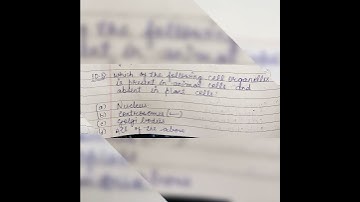 Which of the following cell organelles
is present in animal cells and
absent in plant cells?
(a) Nucleus
(b) Centrosomes
(c) Golgi bodies
(d) All of the above